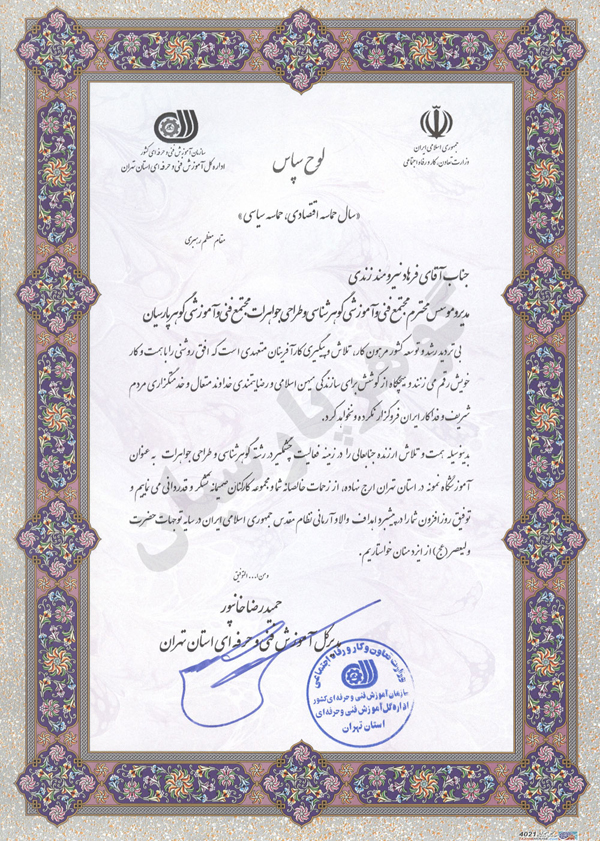 جمهوری اسلامی ایران
وزارت تعاون، کار و رفاه اجتماعی
سازمان آموزش فنی و حرفه ای کشور
اداره کل آموزش فنی و حرفه ای استان تهران
لوح سپاس
«سال حماسه اقتصادی، حماسه سیاسی»
مقام معظم رهبری
جناب آقای فرهاد نیرومند زندی
مدیر و موسس محترم مجتمع فنی و آموزشی گوهرشناسی و طراحی جواهرات مجتمع فنی و آموزشی گوهر پارسیان
بی تردید رشد و توسعه کشور مرهون کار، تلاش و پیگیری کارآفرینان متعهدی است که افق روشنی را با همت و کار
خویش رقم می زنند و هیچگاه از کوشش برای سازندگی میهن اسلامی و رضایتمندی خداوند متعال و خدمتگزاری مردم
شریف و فداکار ایران فروگزار نکرده و نخواهد کرد.
بدینوسیله همت و تلاش ارزنده جنابعالی را در زمینه فعالیت چشمگیر در رشته گوهرشناسی و طراحی جواهرات به عنوان
آموزشگاه نمونه در استان تهران ارج نهاده، از زحمات خالصانه شما و مجموعه کارکنان صمیمانه تشکر و قدردانی می نماییم و
توفیق روزافزون شما را در پیشبرد اهداف والا و آرمانی نظام مقدس جمهوری اسلامی ایران در سایه توجهات حضرت
ولیعصر (عج) از ایزد منان خواستاریم.
و من ا... التوفیق
حمیدرضا خانپور
مدیر کل آموزش فنی و حرفه ای استان تهران
وزارت تعاون و کار و رفاه اجتماعی
سازمان آموزش فنی و حرفه ای کشور
اداره کل آموزش فنی و حرفه ای
استان تهران
گوهر پارسیان
4021